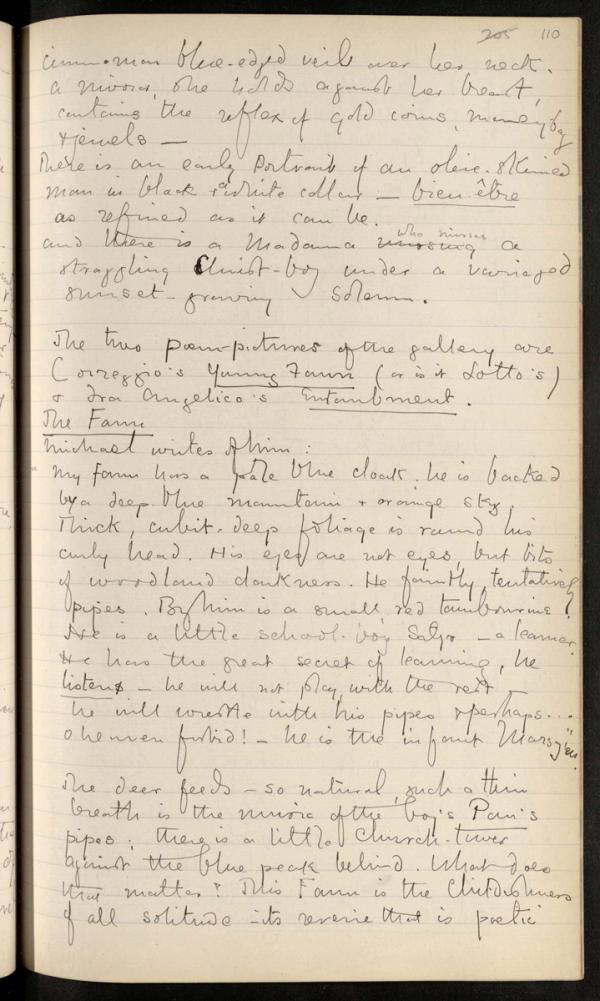 205 110
cinnamon blue-edged veil over her neck.
A mirror, she holds against her breast,
contains the reflex of gold coins, money-bag
& jewels —
There is an early Portrait of an olive-skinned
man in black & white collar — bien-être
as refined as it can be.
and there is a Madonna nursing who nurses a
straggling Christ-boy under a variaged
sunset – growing solemn.
The two poem-pictures of the gallery are
Correggio's Young Faun (or is it Lotto's)
& Fra Angelico's Entombment.
The Faun
Michael writes of him:
"My faun has a pale blue cloak. he is backed
by a deep-blue mountain & orange sky.
Thick, cubit-deep foliage is round his
curly head. His eyes are not eyes, but bits
of woodland darkness. He faintly, tentatively
pipes. By him is a small red tambourine.
He is a little school-boy Satyr — a learner.
He has the great secret of learning, he
listens – he will not play with the rest –
he will wrestle with his pipes & perhaps...
O heaven forbid! – he is the infant Marsyas."
The deer feeds – so natural, such a thin
breath is the music of the boy's Pan's
pipes; there is a little Church-tower
against the blue peak behind. What does
that matter? This Faun is the Childishness
of all solitude – its reverie that is poetic